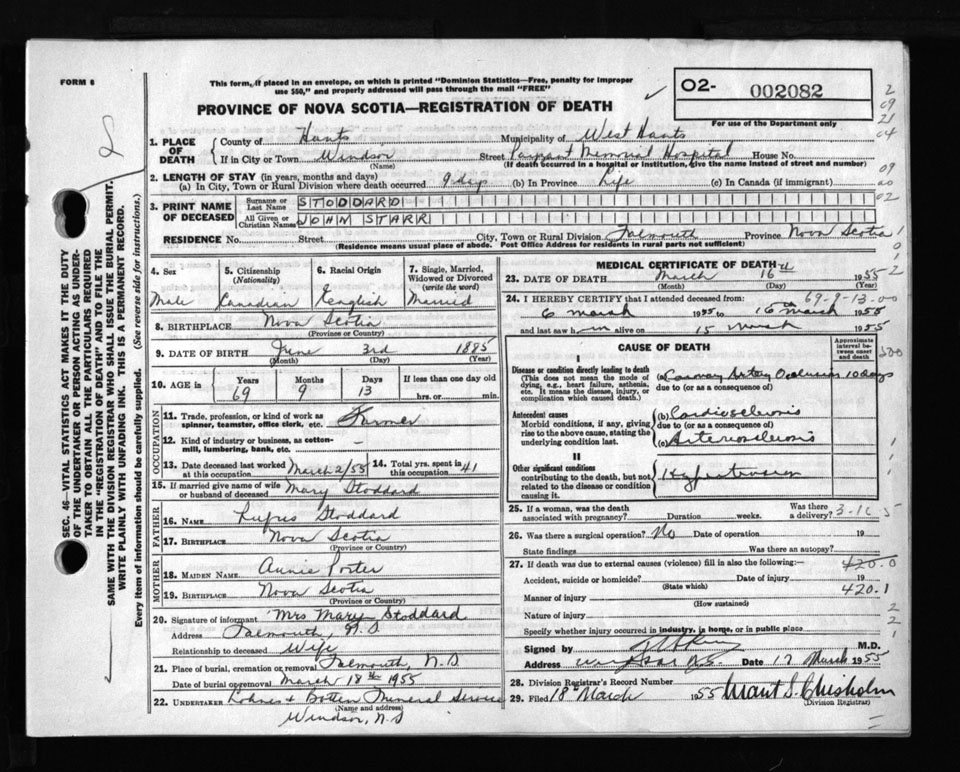 FORM 6
This form, if placed in an envelope, on which is printed "Dominion Statistics—Free, penalty for improper
use $50," and properly addressed will pass through the mail "FREE"
PROVINCE OF NOVA SCOTIA—REGISTRATION OF DEATH
O2- 002082
For use of the Department only
2
09
21
04
09
00
02
SEC. 46—VITAL STATISTICS ACT MAKES IT THE DUTY
OF THE UNDERTAKER OR PERSON ACTING AS UNDER-
TAKER TO OBTAIN ALL THE PARTICULARS REQUIRED
IN THE "REGISTRATION OF DEATH" AND TO FILE THE
SAME WITH THE DIVISION REGISTRAR WHO SHALL ISSUE THE BURIAL PERMIT.
WRITE PLAINLY WITH UNFADING INK. THIS IS A PERMANENT RECORD.
Every item of information should be carefully supplied. (See reverse side for instructions.)
1. PLACE OF DEATH
County of Hants Municipality of West Hants
If in City or Town Windsor Street Payzant Memorial Hospital House No.
(Name) (If death occurred in a hospital or institution, give the name instead of street and number)
2. LENGTH OF STAY (in years, months and days)
(a) In City, Town or Rural Division where death occurred 9 days (b) In Province Life (c) In Canada (if immigrant)
3. PRINT NAME OF DECEASED
Surname or Last Name STODDARD
All Given or Christian Names JOHN STARR
RESIDENCE No. Street City, Town or Rural Division Falmouth Province Nova Scotia
(Residence means usual place of abode. Post Office Address for residents in rural parts not sufficient)
4. Sex Male
5. Citizenship (Nationality) Canadian
6. Racial Origin English
7. Single, Married, Widowed or Divorced (write the word) Married
8. BIRTHPLACE Nova Scotia
(Province or Country)
9. DATE OF BIRTH June 3rd 1885
(Month) (Day) (Year)
10. AGE in Years Months Days If less than one day old
69 9 13 hrs. or min.
OCCUPATION
11. Trade, profession, or kind of work as
spinner, teamster, office clerk, etc. Farmer
12. Kind of industry or business, as cotton-
mill, lumbering, bank, etc.
13. Date deceased last worked at this occupation March 2/55 14. Total yrs. spent in this occupation 41
15. If married give name of wife
or husband of deceased Mary Stoddard
FATHER
16. NAME Rufus Stoddard
17. BIRTHPLACE Nova Scotia
(Province or Country)
MOTHER
18. MAIDEN NAME Annie Porter
19. BIRTHPLACE Nova Scotia
(Province or Country)
20. Signature of informant Mrs Mary Stoddard
Address Falmouth, N.S
Relationship to deceased Wife
21. Place of burial, cremation or removal Falmouth, N.S.
Date of burial or removal March 18th 1955
22. UNDERTAKER Funeral Service
(Name and address)
Windsor, N.S
MEDICAL CERTIFICATE OF DEATH
23. DATE OF DEATH March 16th 1955
(Month) (Day) (Year)
24. I HEREBY CERTIFY that I attended deceased from: 69-9-13-00
6 March 1955 to 16th March 1955
and last saw him alive on 15 March 1955
CAUSE OF DEATH
Approximate interval between onset and death
I
Disease or condition directly leading to death
(This does not mean the mode of
dying, e.g., heart failure, asthenia,
etc. It means the disease, injury, or
complication which caused death.)
(a) Coronary Artery Occlusion 10 days
due to (or as a consequence of)
Antecedent causes
Morbid conditions, if any, giving
rise to the above cause, stating the
underlying condition last.
(b) Cardiosclerosis
due to (or as a consequence of)
(c) Arteriosclerosis
II
Other significant conditions
contributing to the death, but not
related to the disease or condition
causing it.
Hypertension
25. If a woman, was the death
associated with pregnancy? Duration weeks. Was there a delivery? 3-16 5
26. Was there a surgical operation? No Date of operation 19
State findings Was there an autopsy?
27. If death was due to external causes (violence) fill in also the following:— 420.0
Accident, suicide or homicide? Date of injury 19
(State which) 420.1
Manner of injury
(How sustained)
Nature of injury
Specify whether injury occurred in industry, in home, or in public place
Signed by M.D.
Address Windsor N.S. Date 17 March 1955
28. Division Registrar's Record Number
29. Filed 18 March 1955 Grant S. Chisholm
(Division Registrar)